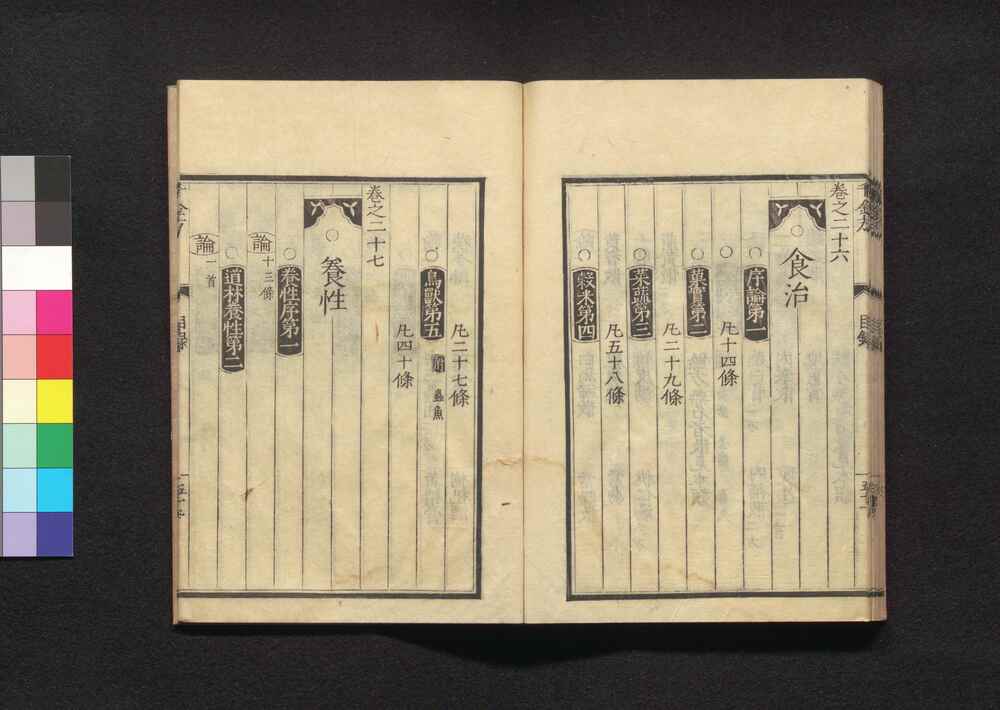 卷之二十六
食治
序論第一
凡十四條
菓實第二
凡二十九條
菜蔬第三
凡五十八條
穀米第四
凡二十七條
鳥獸第五 附 蟲魚
凡四十條
卷之二十七
養性
養性序第一
論十三首
道林養性第二
論一首
目錄